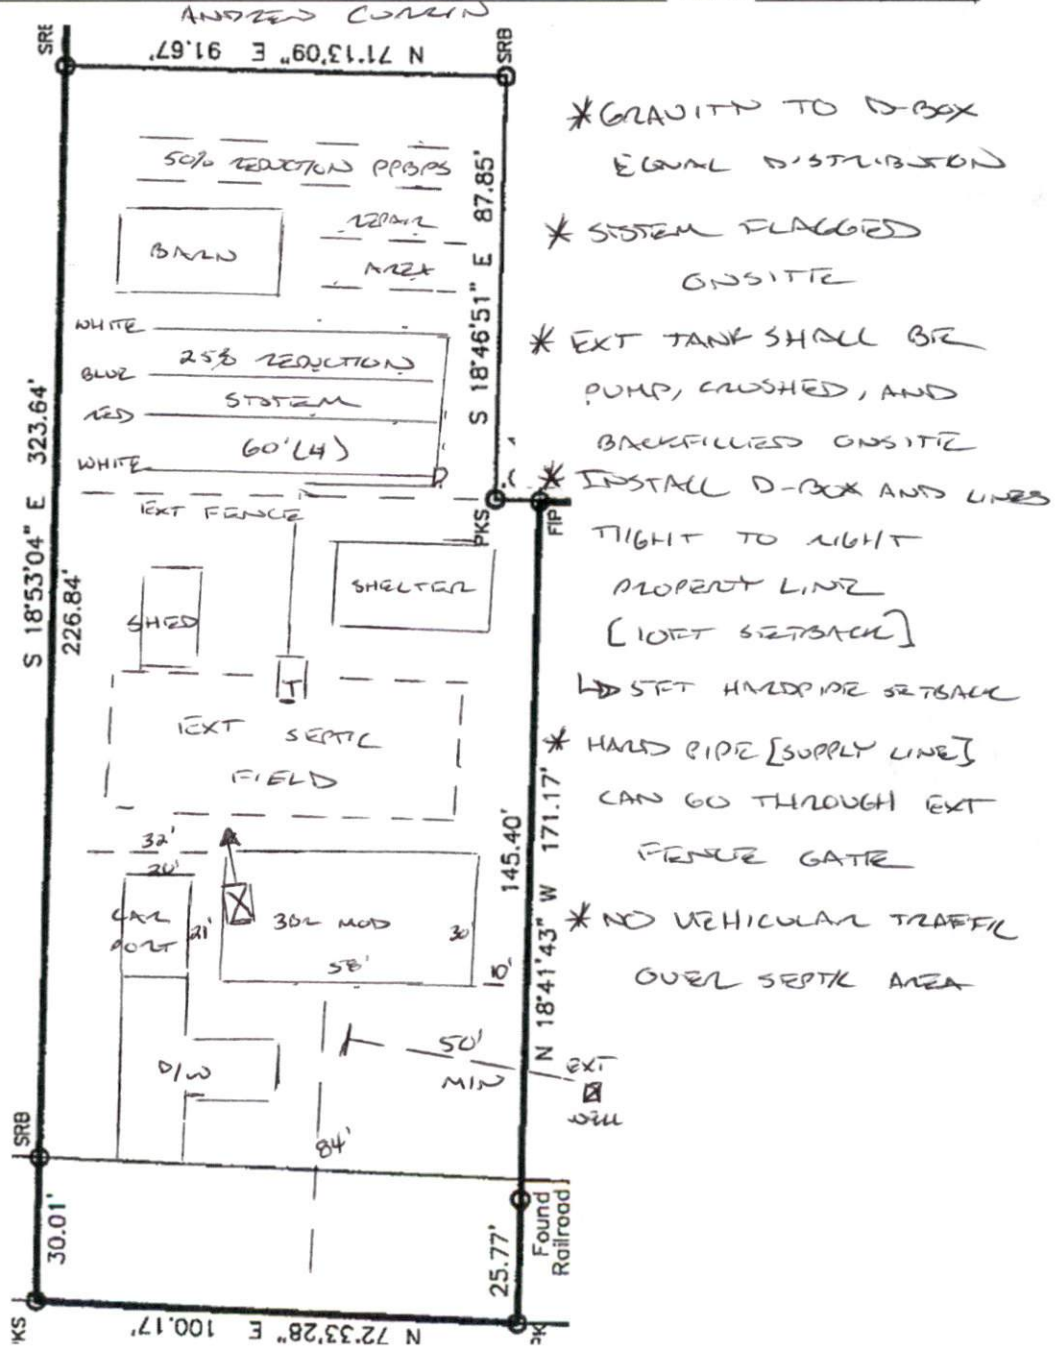 ANDREW CURRIN
SRB
N 71°13'09" E 91.67'
SRB
50% REDUCTION PPBPS
BARN
REPAIR
AREA
S 18°46'51" E 87.85'
WHITE
BLUE
RED
WHITE
25% REDUCTION
SYSTEM
60' (4)
EXT FENCE
S 18°53'04" E 323.64'
226.84'
PKS
FIP
SHED
SHELTER
T
EXT SEPTIC
FIELD
32'
20'
CAR
PORT
21'
3BR MOD
30
58'
10'
145.40'
N 18°41'43" W 171.17'
D/W
50'
MIN
EXT
WELL
84'
SRB
30.01'
25.77'
Found
Railroad
PKS
N 72°33'28" E 100.17'
PK
* GRAVITY TO D-BOX
EQUAL DISTRIBUTION
* SYSTEM FLAGGED
ONSITE
* EXT TANK SHALL BE
PUMP, CRUSHED, AND
BACKFILLED ONSITE
* INSTALL D-BOX AND LINES
TIGHT TO RIGHT
PROPERTY LINE
[10FT SETBACK]
↳ 5FT HARDPIPE SETBACK
* HARD PIPE [SUPPLY LINE]
CAN GO THROUGH EXT
FENCE GATE
* NO VEHICULAR TRAFFIC
OVER SEPTIC AREA